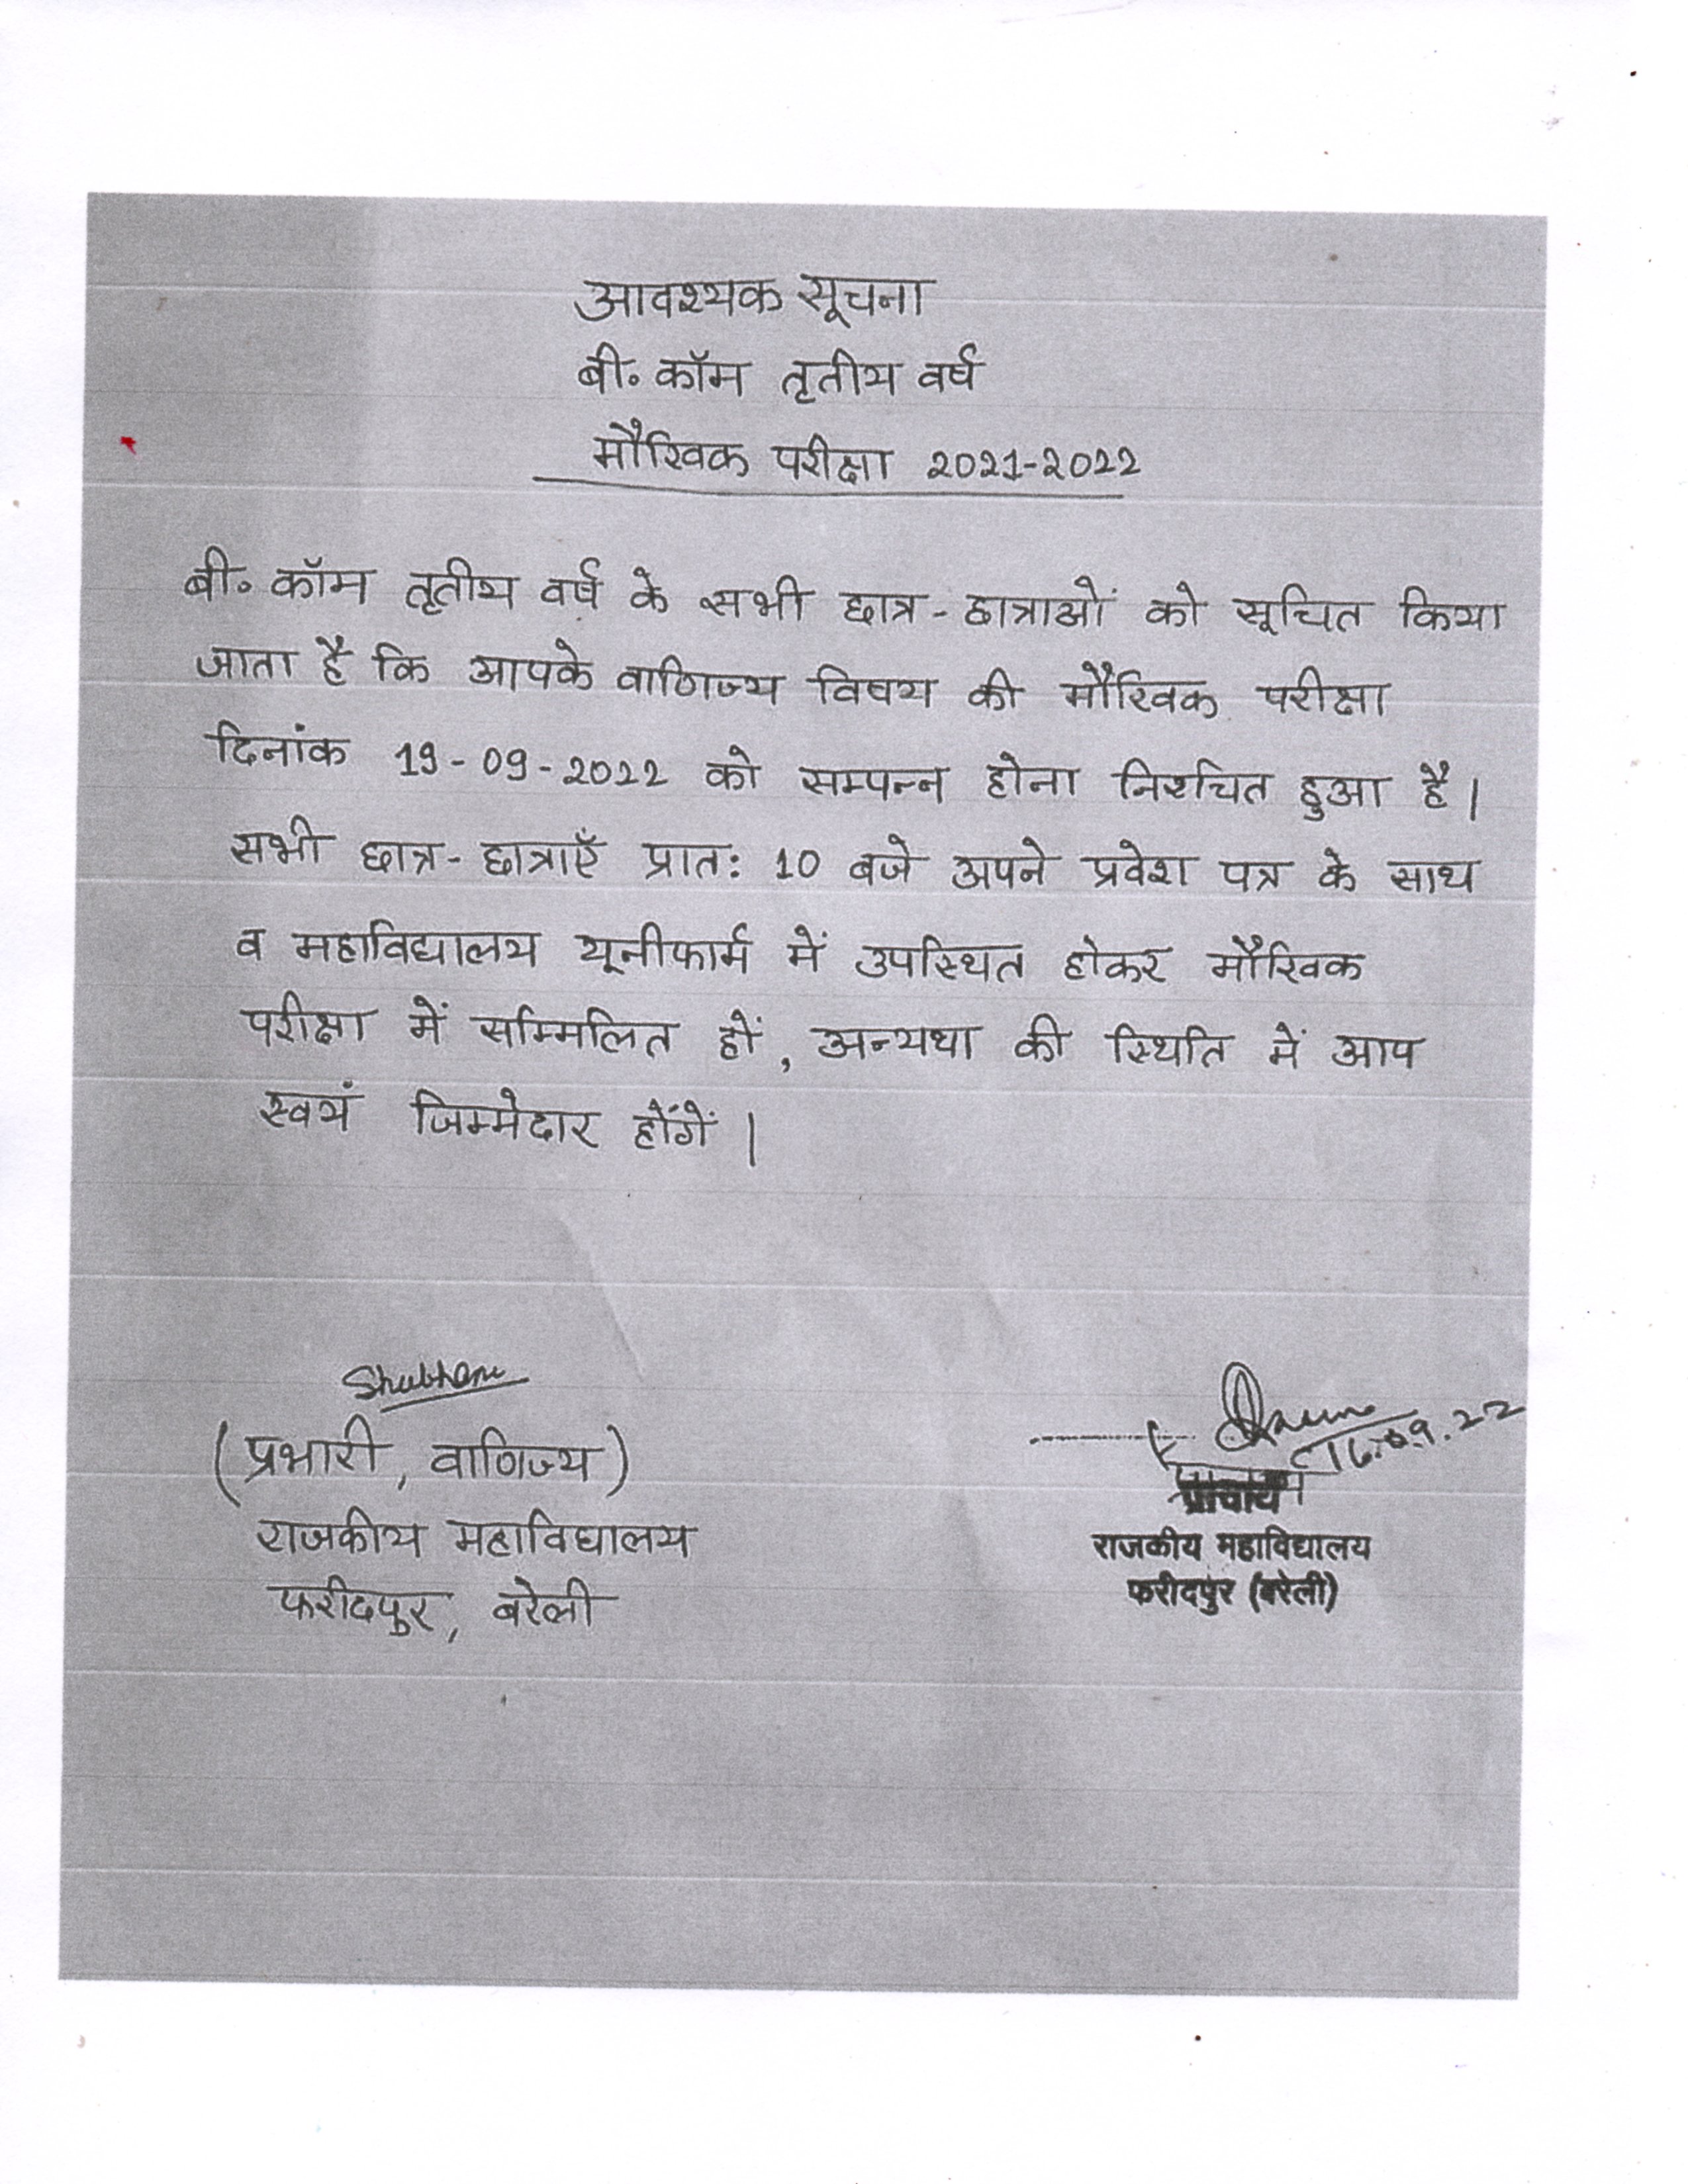 आवश्यक सूचना
बी. कॉम तृतीय वर्ष
मौखिक परीक्षा 2021-2022
बी. कॉम तृतीय वर्ष के सभी छात्र-छात्राओं को सूचित किया
जाता है कि आपके वाणिज्य विषय की मौखिक परीक्षा
दिनांक 19-09-2022 को सम्पन्न होना निश्चित हुआ है।
सभी छात्र-छात्राएँ प्रातः 10 बजे अपने प्रवेश पत्र के साथ
व महाविद्यालय यूनीफार्म में उपस्थित होकर मौखिक
परीक्षा में सम्मिलित हों, अन्यथा की स्थिति में आप
स्वयं जिम्मेदार होंगें।
Shubham
(प्रभारी, वाणिज्य)
राजकीय महाविद्यालय
फरीदपुर, बरेली
16.09.22
प्राचार्य
राजकीय महाविद्यालय
फरीदपुर (बरेली)